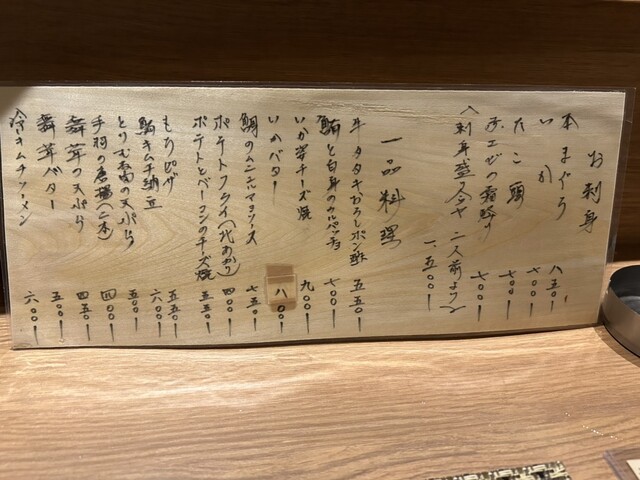 お刺身
本まぐろ 八五〇
いか 七〇〇
たこ頭 七〇〇
赤エビの霜降り 七〇〇
〈刺身盛合せ 二人前より〉 一、五〇〇
一品料理
牛タタキおろしポン酢 五五〇
鮪と白身のカルパッチョ 七〇〇
いか姿チーズ焼 九〇〇
いかバター 八〇〇
鯛のムニエルマヨソース 七五〇
ポテトフライ(北あかり) 四〇〇
ポテトとベーコンのチーズ焼 五五〇
もちピザ 五五〇
鮪キムチ納豆 六〇〇
とりむね肉の天ぷら 五〇〇
手羽の唐揚(二本) 四〇〇
舞茸の天ぷら 四五〇
舞茸バター 五〇〇
冷キムチソーメン 六〇〇